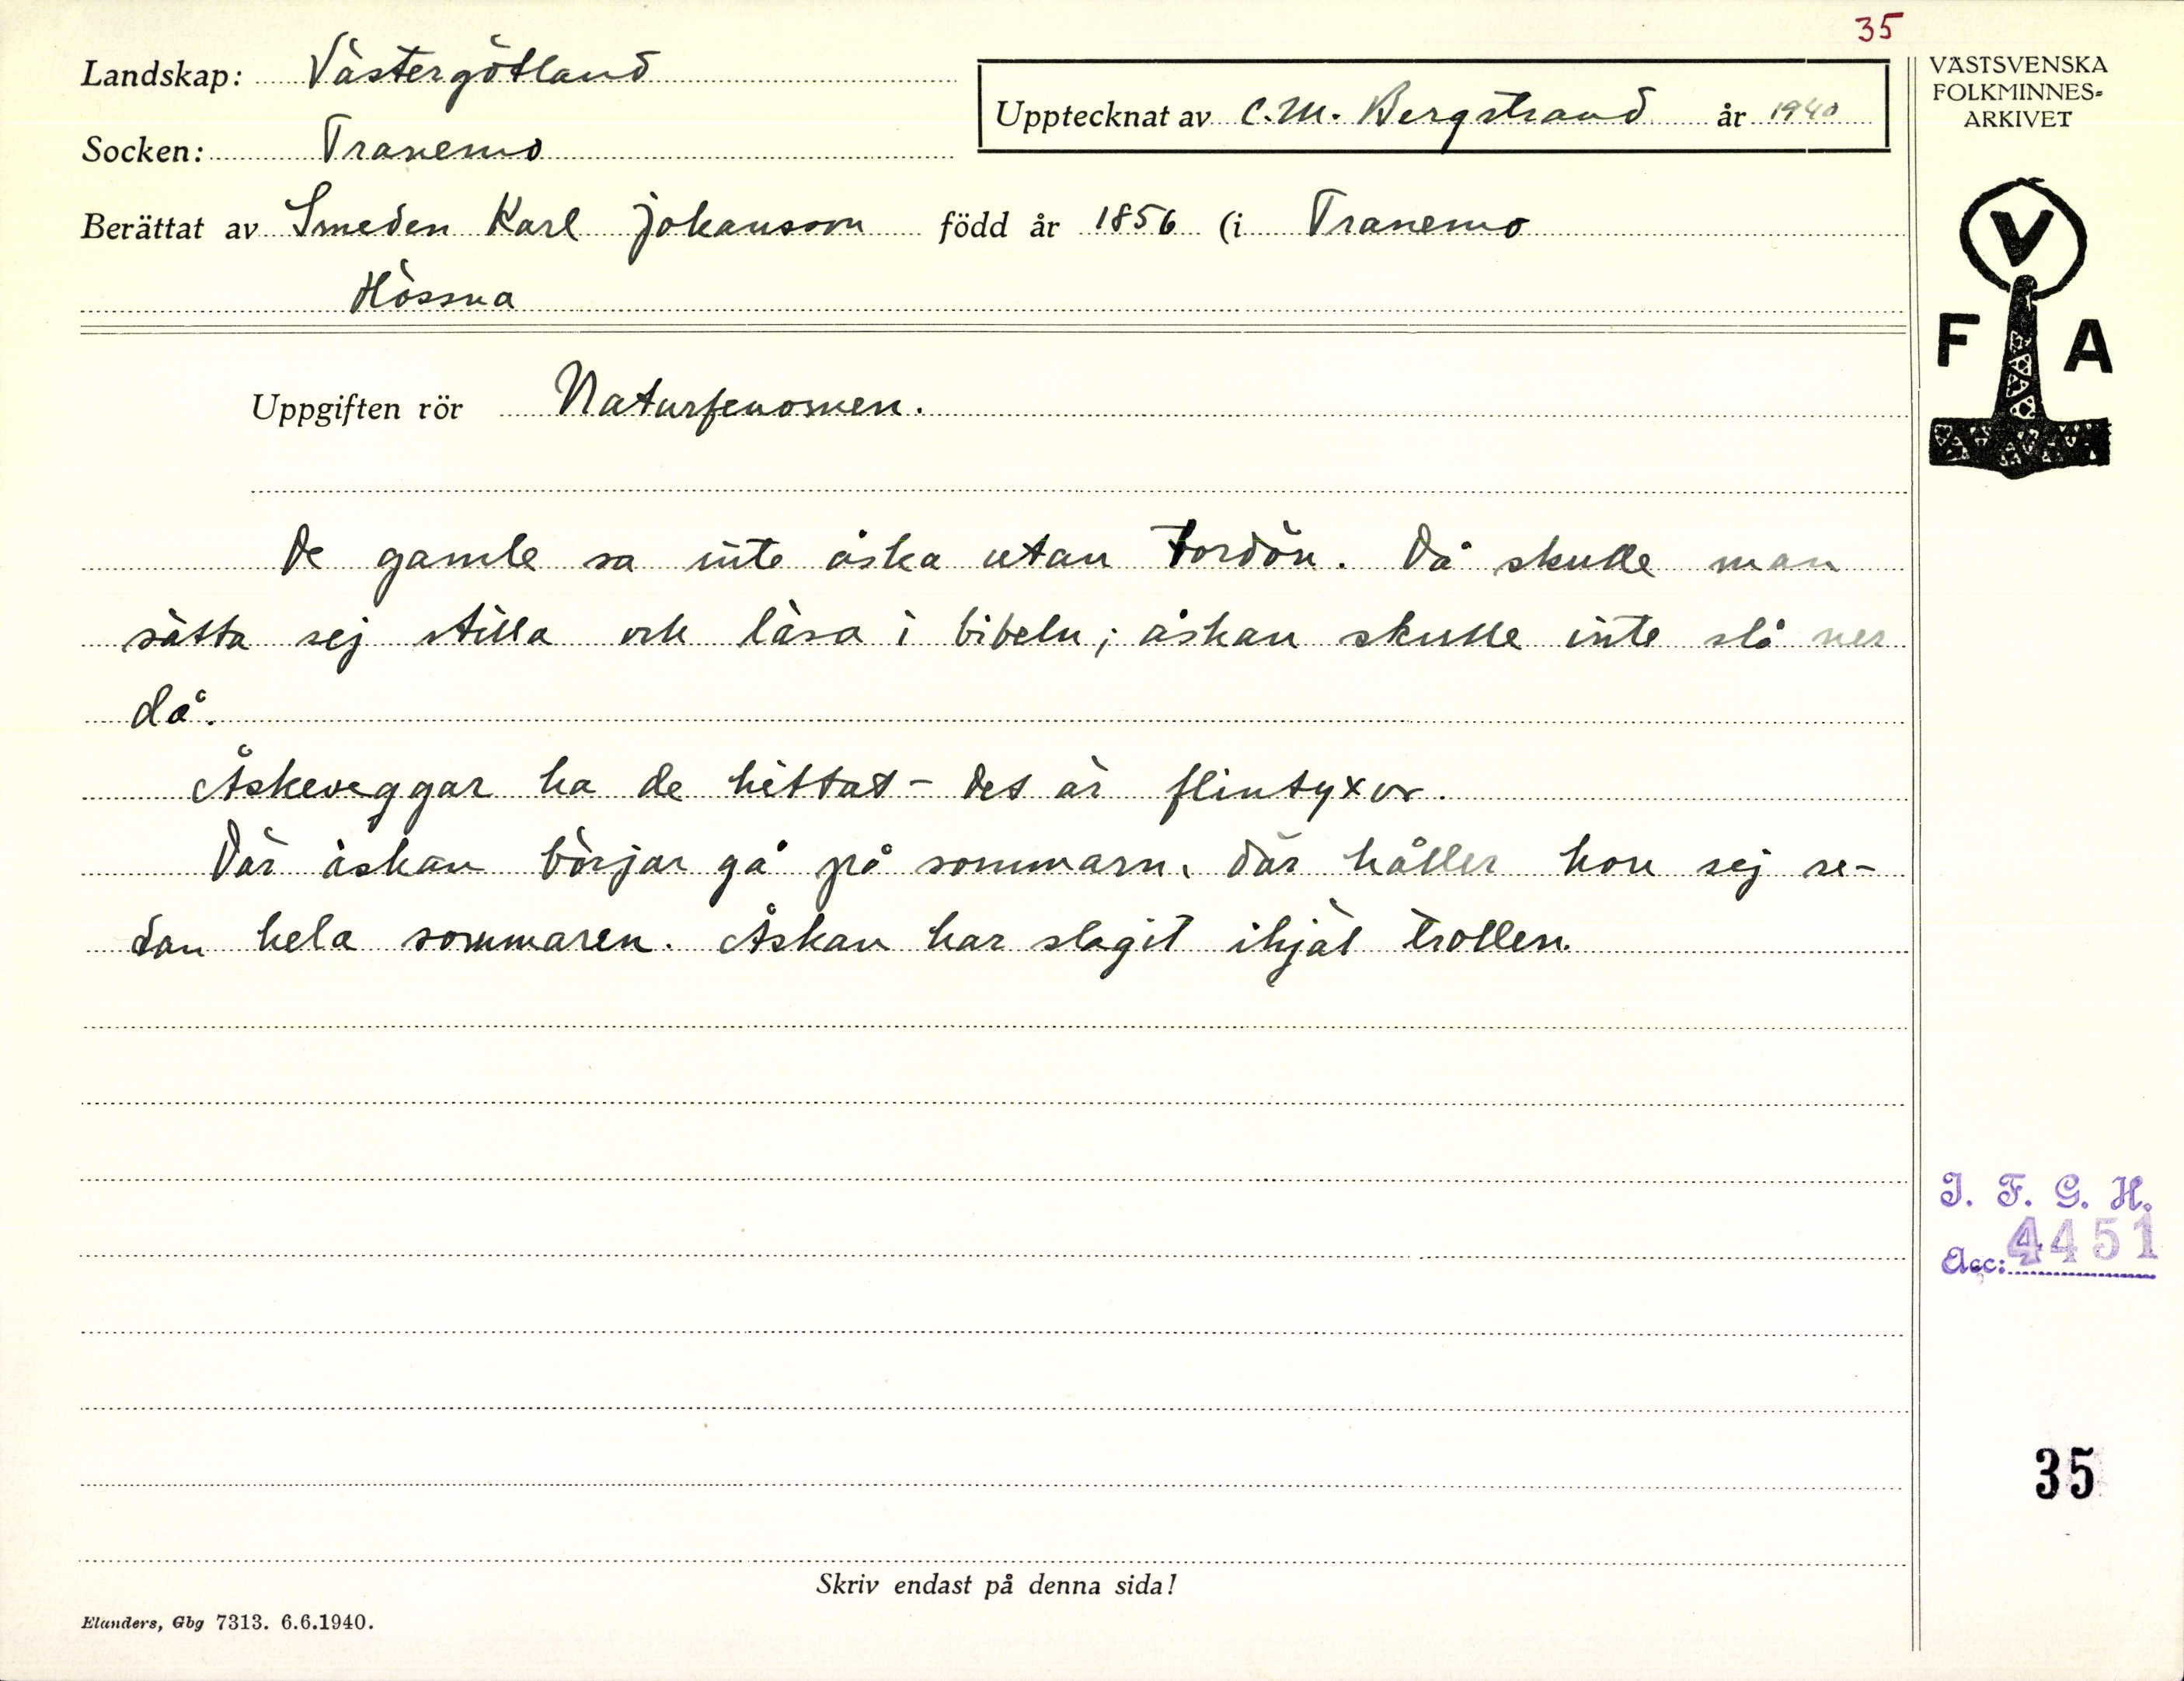 35
Landskap: Västergötland
Upptecknat av C.M. Bergstrand år 1940
Socken: Tranemo
Berättat av Smeden Karl Johansson född år 1856 (i Tranemo
Hössna
VÄSTSVENSKA
FOLKMINNES=
ARKIVET
V
F A
Uppgiften rör Naturfenomen.
De gamle sa inte åska utan Tordön. Då skulle man
sätta sej stilla och läsa i bibeln; åskan skulle inte slå ner
då.
Åskeveggar ha de hittat – det är flintyxor.
Där åskan börjar gå på sommarn, där håller hon sej se-
dan hela sommaren. Åskan har slagit ihjäl trollen.
I. F. G. H.
Acc: 4451
35
Skriv endast på denna sida!
Elanders, Gbg 7313. 6.6.1940.